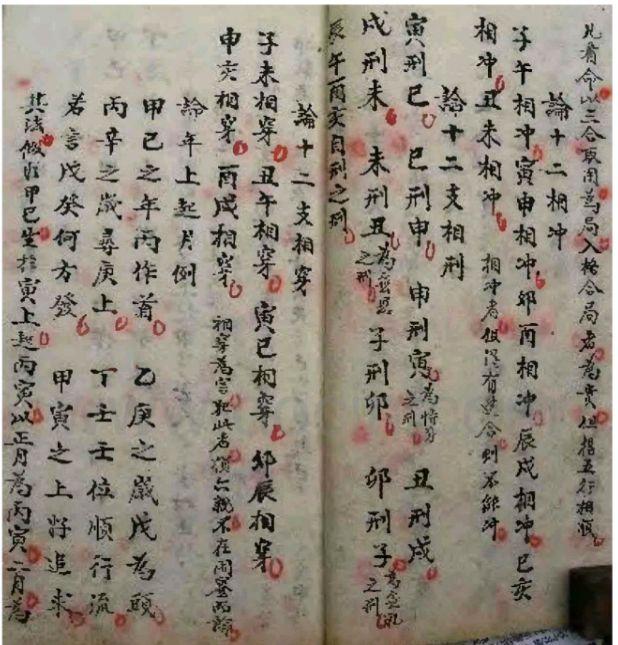 凡看命以三合取用為局入格合局者為貴但五行相順
論十二相冲
子午相冲寅申相冲卯酉相冲辰戌相冲巳亥
相冲丑未相冲 相冲者但有合則不能冲
論十二支相刑
寅刑巳 巳刑申 申刑寅為恃势之刑 丑刑戌
戌刑未 未刑丑為無恩之刑 子刑卯 卯刑子為無礼之刑
辰午酉亥自刑之刑
論十二支相穿
子未相穿丑午相穿寅巳相穿卯辰相穿
申亥相穿酉戌相穿 相穿為害犯此者損六親不在
論年上起月例
甲己之年丙作首 乙庚之歲戊為頭
丙辛之歲尋庚上 丁壬壬位順行流
若言戊癸何方發 甲寅之上好追求
其法假如甲己生於寅上起丙寅以正月為丙寅二月為